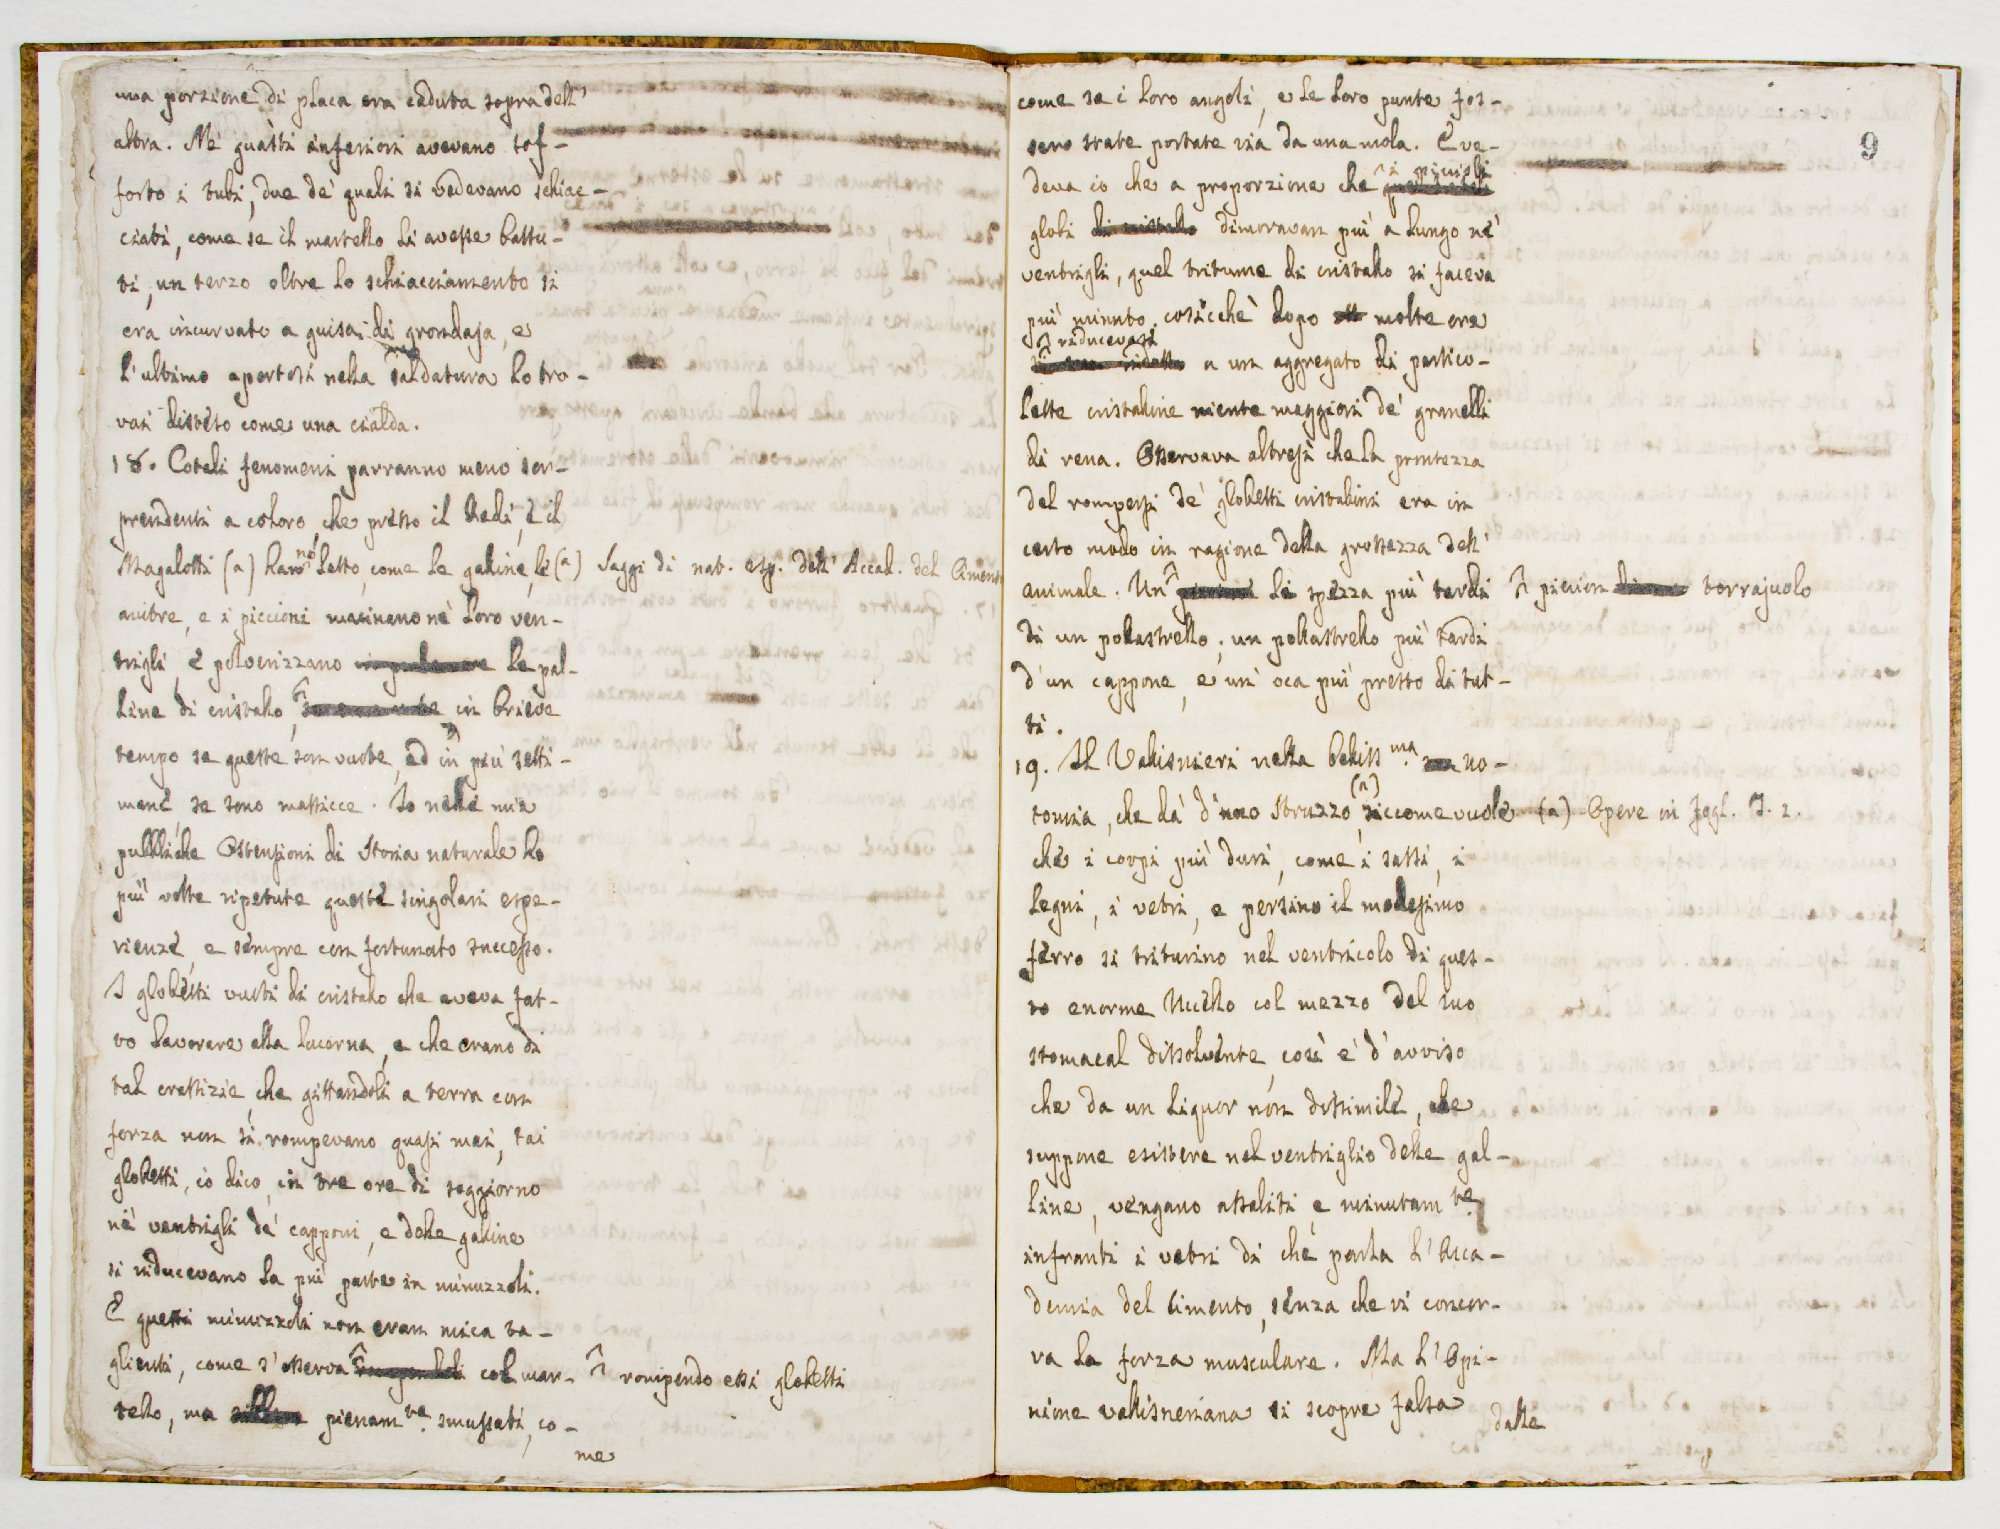 una porzione di placa era caduta sopra dell'
altra. Nè guasti inferiori avevano sof-
ferto i tubi, due de' quali si vedevano schiac-
ciati, come se il martello li avesse battu-
ti, un terzo oltre lo schiacciamento si
era incurvato a guisa di grondaja, e
l'ultimo apertosi nella saldatura lo tro-
vai disteso come una cialda.
18. Cotali fenomeni parranno meno sor-
prendenti a coloro, che presso il Redi, e il
Magalotti (a) hanno letto, come le galline, le
anitre, e i piccioni macinano nè loro ven-
trigli, e polverizzano le pal-
line di cristallo in brieve
tempo se queste son vuote, ed in più setti-
mane, se sono massicce. Io nelle mie
pubbliche Ostensioni di Storia naturale ho
più volte ripetute queste singolari espe-
rienze, e sempre con fortunato successo.
I globetti vuoti di cristallo che aveva fat-
to lavorare alla lucerna, e che erano di
tal crassizie, che gittandoli a terra con
forza non si rompevano quasi mai, tai
globetti, io dico, in tre ore di soggiorno
nè ventrigli de' capponi, e delle galline
si riducevano la più parte in minuzzoli.
E questi minuzzoli non eran mica ta-
glienti, come s'osserva col mar-
tello, ma pienam.te smussati, co-
me
(a) Saggi di nat. esp. dell' Accad. del Cimento
rompendo essi globetti
9
come se i loro angoli, e le loro punte fos-
sero state portate via da una mola. E ve-
deva io che a proporzione che i piccioli
globi dimoravan più a lungo nè
ventrigli, quel tritume di cristallo si faceva
più minuto, cosicchè dopo molte ore
riducevasi
a un aggregato di partico-
lette cristalline niente maggiori de' granelli
di rena. Osservava altresì che la prontezza
del rompersi de' globetti cristallini era in
certo modo in ragione della grossezza dell'
animale. Un li spezza più tardi
di un pollastrello, un pollastrello più tardi
d'un cappone, e un' oca più presto di tut-
ti.
19. Il Valisnieri nella belliss.ma no-
tomia, che dà d'uno Struzzo (a), siccome vuole
che i corpi più duri, come i sassi, i
legni, i vetri, e persino il medesimo
ferro si triturino nel ventricolo di ques-
to enorme Uccello col mezzo del suo
stomacal dissolvente, così è d'avviso
che da un liquor non dissimile, che
suppone esistere nel ventriglio delle gal-
line, vengano assaliti, e minutam.te
infranti i vetri di che parla l'Acca-
demia del Cimento, senza che vi concor-
ra la forza musculare. Ma l'Opi-
nione vallisneriana si scopre falsa
dalle
piccion torrajuolo
(a) Opere in fogl. T. 1.